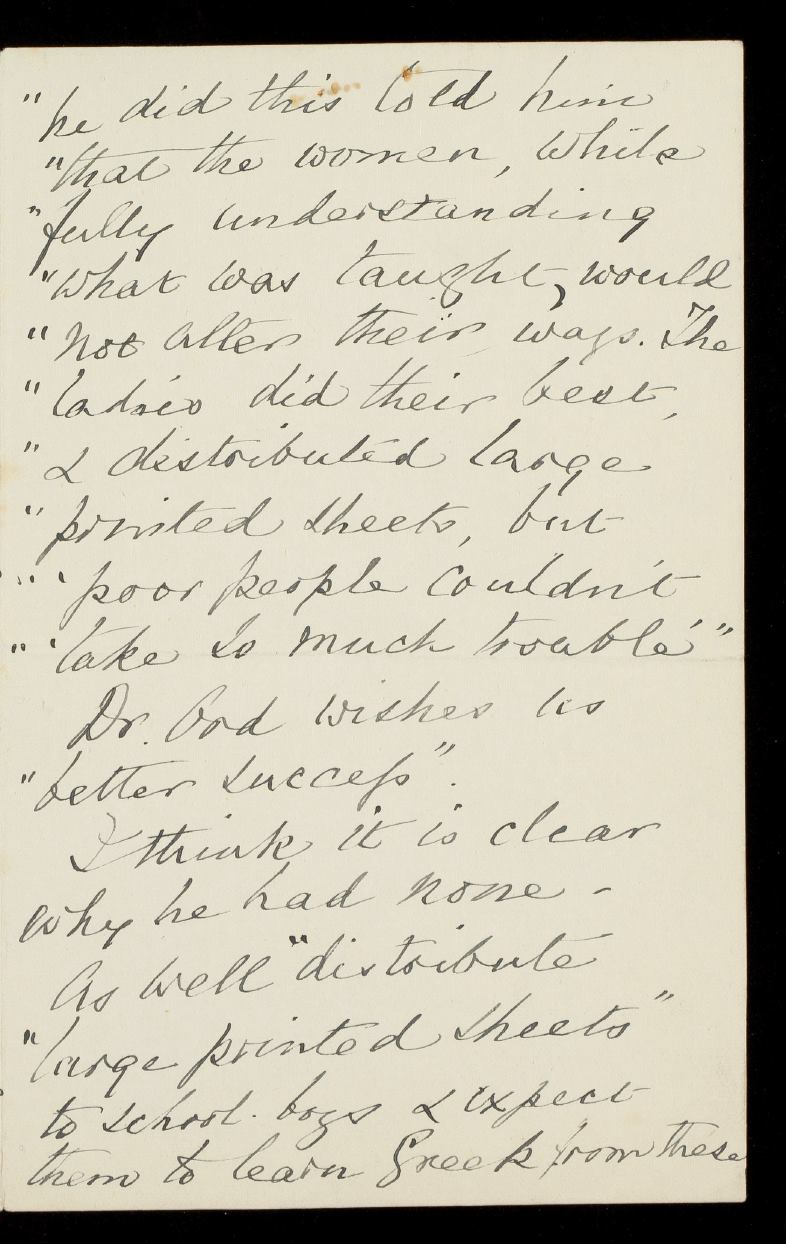 "he did this told him
"that the women, while
"fully understanding
"what was taught, would
"not alter their ways. The
"ladies did their best,
"& distributed large
"printed sheets, but
"'poor people couldn't
"'take so much trouble'"
Dr. Ord wishes us
"better success".
I think it is clear
why he had none -
As well "distribute
"large printed sheets"
to school-boys & expect
them to learn Greek from these